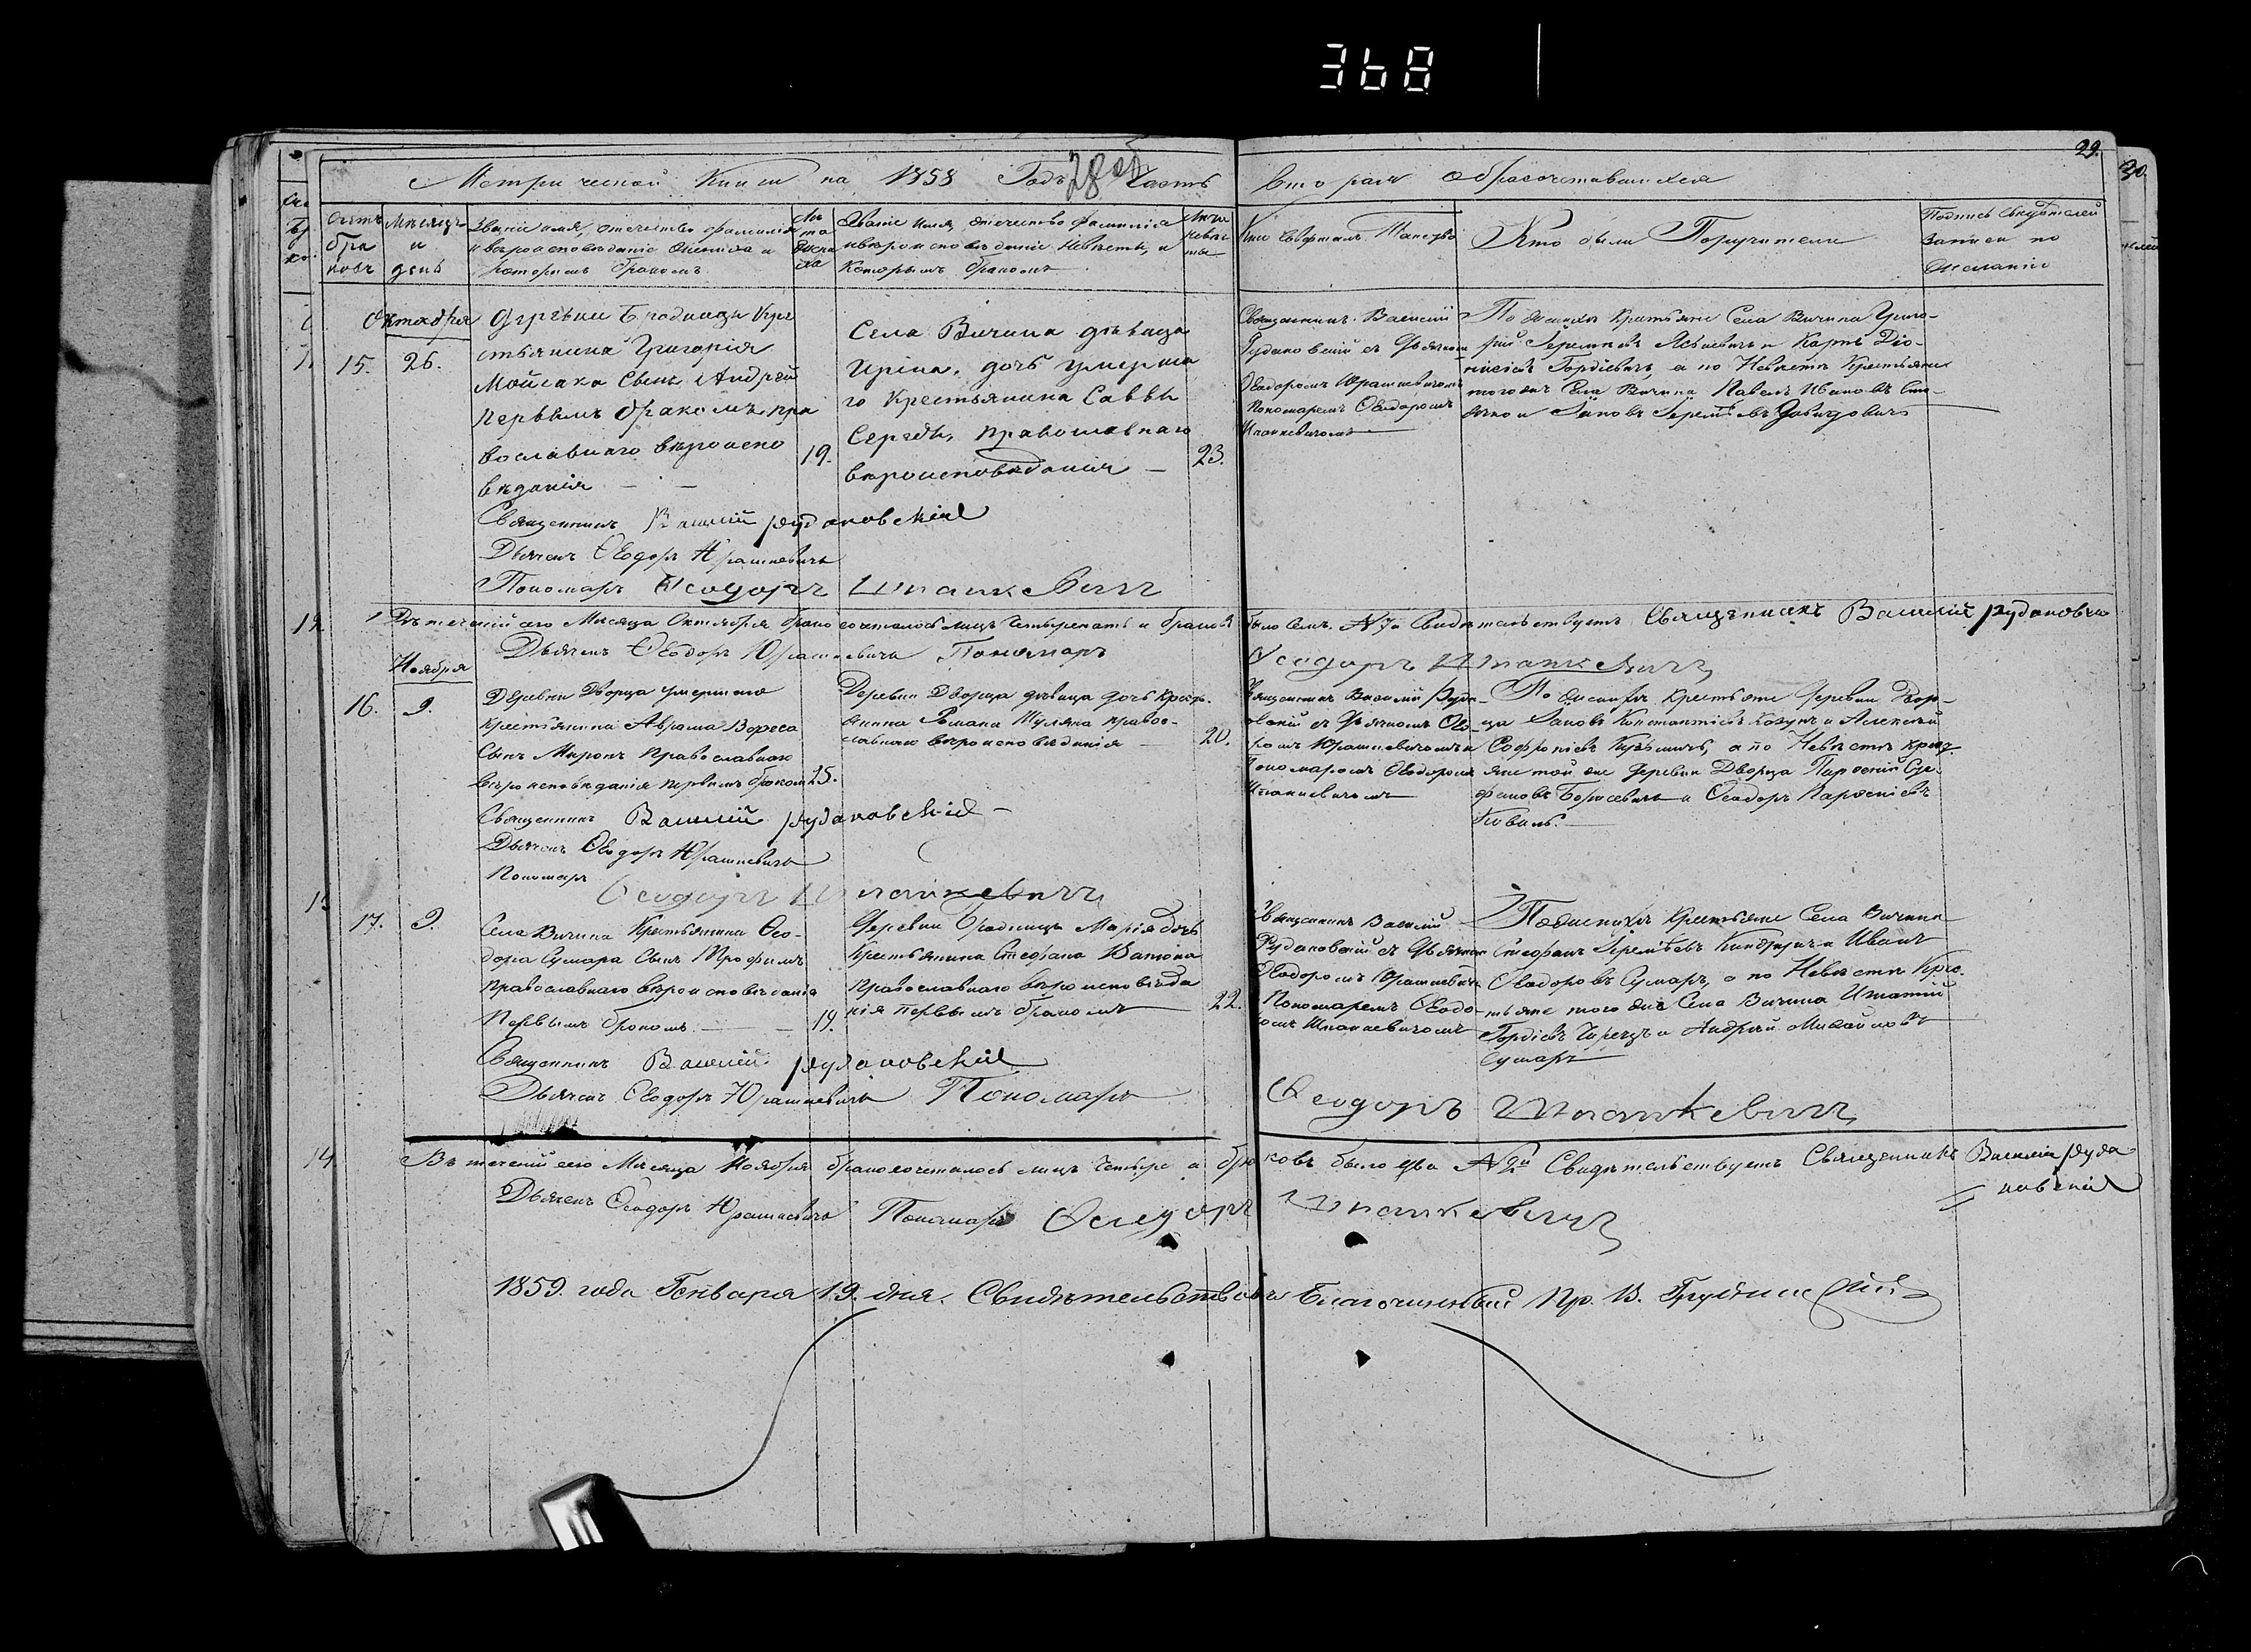 368
29.
30.
Метрической Книги на 1858 Годъ 28 об Часть
вторая о бракосочетавшихся
Счетъ
бра
ковъ
Мѣсяцъ
и
день
Званіе имя, отечество фамилія
и вѣроисповѣданіе Жениха и
которымъ бракомъ.
Лѣ
та
Жени
ха
Званіе имя, отечество фамилія
и вѣроисповѣданіе Невѣсты, и
которымъ бракомъ
Лѣта
невѣс
ты
Кто совершалъ Таинство
Кто были Поручители
Подпись свидѣтелей
записи по
желанію
Октября
15.
26.
деревни Бродница Кре
стьянина Григорія
Мойсака Сынъ Андрей
первымъ бракомъ пра
вославнаго вѣроиспо
вѣданія
19.
Села Вичина дѣвица
Ирина, дочь умерша
го Крестьянина Саввы
Середы, православнаго
вѣроисповѣданія
23.
Священникъ Василий
Рудановский съ Дьячкомъ
Ѳеодоромъ Юрашкевичемъ
Пономаремъ Ѳеодоромъ
Шпанкевичомъ
По женихѣ Крестьяне Села Вичина Григо-
рий Іеремѣевъ и Карпъ Діо-
нисіевъ Гордіевичъ, а по Невѣстѣ Крестьяне
того же Села Вичина Павелъ Ивановъ
и Іаковъ Іеремѣевъ Давидовичъ
Священникъ Василий Рудановский
Дьячекъ Ѳеодоръ Юрашкевичъ
Пономарь Ѳеодоръ Шпанкевичъ
Въ теченіи сего Мѣсяца Октября бракосочеталось лицъ Четырнать а браковъ было Семъ. № 7й Свидѣтельствуетъ Священникъ Василий Рудановский
Дьячекъ Ѳеодоръ Юрашкевичъ Пономарь Ѳеодоръ Шпанкевичъ
Ноября
16.
9.
Деревни Дворца умершаго
крестьянина Аврама
Сынъ Миронъ Православнаго
вѣроисповѣданія первымъ бракомъ
25.
Деревни Дворца дѣвица дочь Крестья-
янина Романа правос-
лавнаго вѣроисповѣданія
20.
Священникъ Василий Руда-
новский съ Дьячкомъ Ѳео-
ромъ Юрашкевичемъ и
Пономаромъ Ѳеодоромъ
Шпанкевичемъ
По женихѣ Крестьяне Деревни Двор-
ца Іаковъ Константіевъ и Алексѣй
Софроніевъ а по Невѣстѣ крес-
яне той же Деревни Дворца Парѳеній Сте-
фановъ и Ѳеодоръ Парѳеніевъ
Коваль.
Священникъ Василий Рудановский
Дьячекъ Ѳеодоръ Юрашкевичъ
Пономарь
Ѳеодоръ Шпанкевичъ
17.
9.
Села Вичина Крестьянина Ѳео-
дора Сумара Сынъ Трофимъ
православнаго вѣроисповѣданія
Первымъ бракомъ.
19.
Деревни Бродница Марія дочь
Крестьянина Стефана
Православнаго вѣроисповѣда
нія первымъ бракомъ
22.
Священникъ Василий
Рудановский съ Дьячкомъ
Ѳеодоромъ Юрашкевичемъ
Пономаремъ Ѳеодо-
ромъ Шпанкевичомъ
По женихѣ Крестьяне Села Вичина
Стефанъ Іеремѣевъ и Иванъ
Ѳеодоровъ Сумаръ, а по Невѣстѣ Кре-
стьяне того же Села Вичина Игнатій
Гордіевъ и Андрей Михайловъ
Сумаръ
Священникъ Василий Рудановский
Дьячекъ Ѳеодоръ Юрашкевичъ Пономарь
Ѳеодоръ Шпанкевичъ
Въ теченіи сего Мѣсяца Ноября бракосочеталось лицъ Четыре а браковъ было два № 2й Свидѣтельствуетъ Священникъ Василий Руда
новский
Дьячекъ Ѳеодоръ Юрашкевичъ Пономарь Ѳеодоръ Шпанкевичъ
1859. года Генваря 19. дня. Свидѣтельствовалъ Благочинный Пр. В.